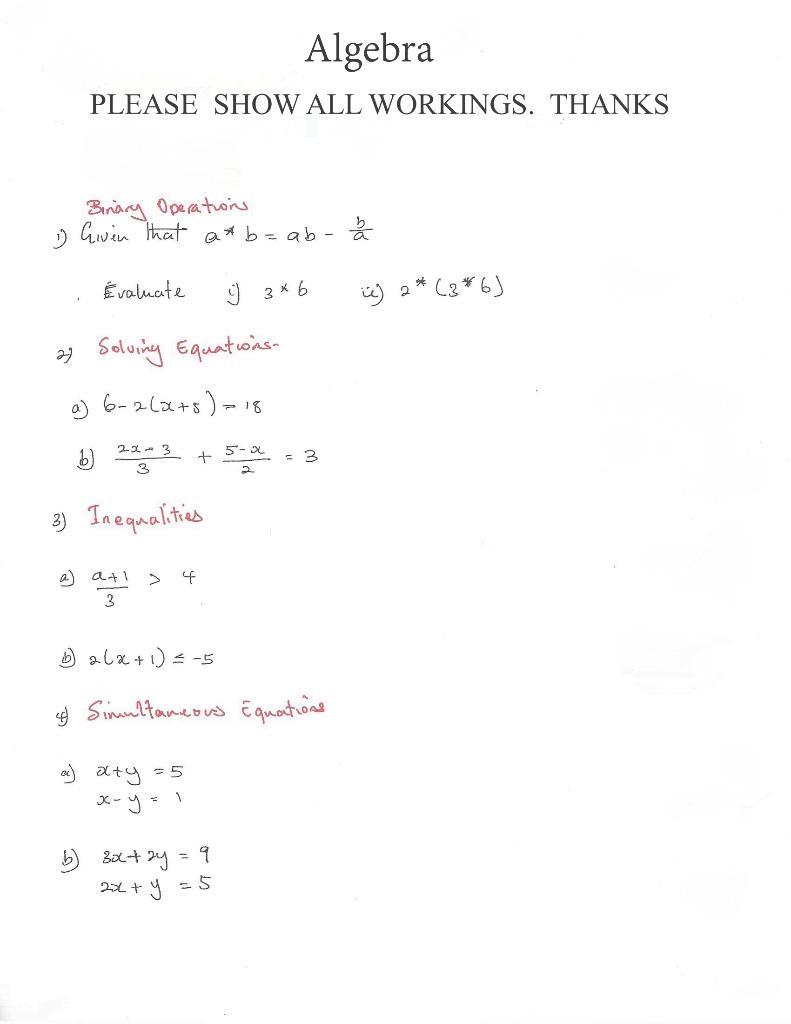 Algebra
PLEASE SHOW ALL WORKINGS. THANKS
Binary Operations
1) Given that a * b = ab - b/a
Evaluate i) 3 * 6 ii) 2 * (3 * 6)
2) Solving Equations-
a) 6-2(x+5) = 18
b) (2x-3)/3 + (5-x)/2 = 3
3) Inequalities
a) (a+1)/3 > 4
b) 2(x+1) ≤ -5
4) Simultaneous Equations
a) x+y = 5
x-y = 1
b) 3x+2y = 9
2x+y = 5